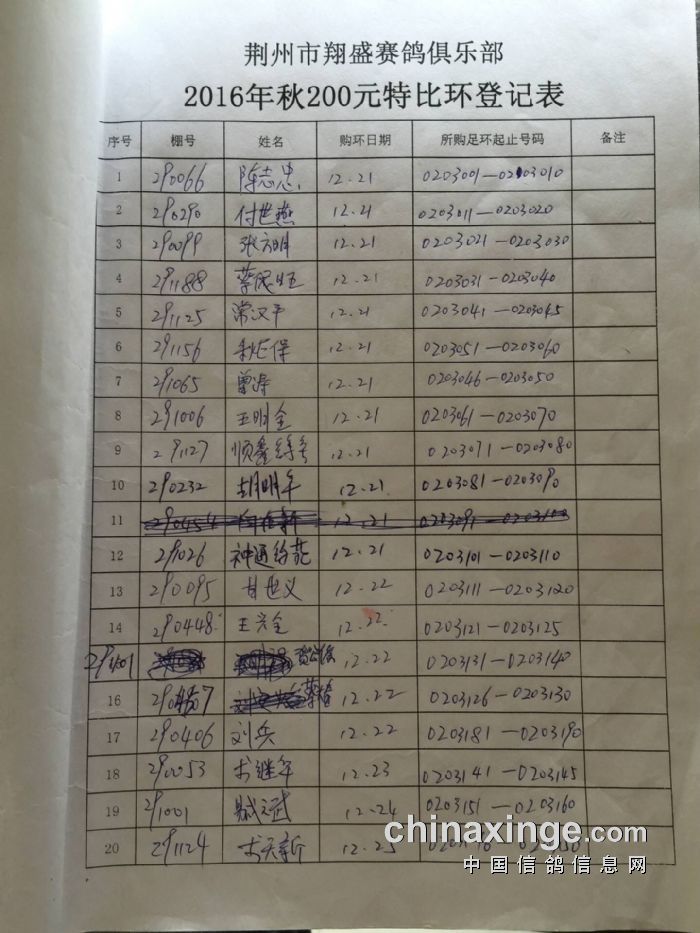 荆州市翔盛赛鸽俱乐部
2016年秋200元特比环登记表
序号 棚号 姓名 购环日期 所购足环起止号码 备注
1 290066 陈志忠 12.21 0203001—0203010
2 290290 付世燕 12.21 0203011—0203020
3 290099 张方明 12.21 0203021—0203030
4 291188 12.21 0203031—0203040
5 291125 常汉平 12.21 0203041—0203045
6 291156 12.21 0203051—0203060
7 291065 曾涛 12.21 0203046—0203050
8 291006 王明全 12.21 0203061—0203070
9 291127 顺鑫 12.21 0203071—0203080
10 290232 胡明年 12.21 0203081—0203090
11 290454 12.21 0203091—0203100
12 291026 神通 12.21 0203101—0203110
13 290095 甘世义 12.22 0203111—0203120
14 290448 王兴全 12.22 0203121—0203125
12.22 0203131—0203140
16 12.22 0203126—0203130
17 290406 刘兵 12.22 0203181—0203190
18 290053 12.23 0203141—0203145
19 291001 12.24 0203151—0203160
20 291124 12.25
chinaxinge.com
中国信鸽信息网